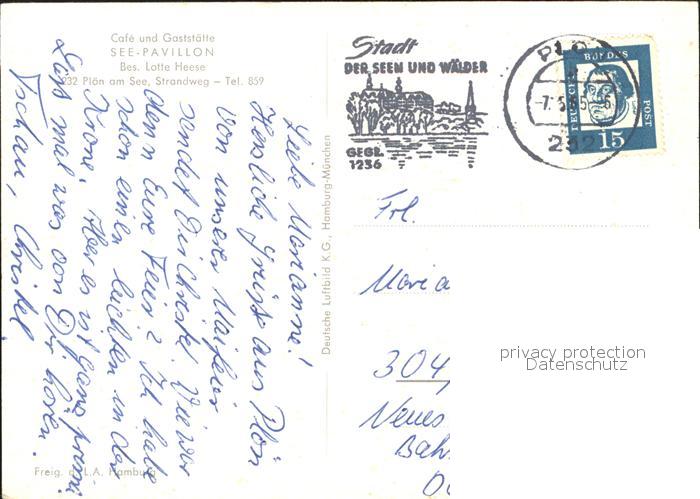 Café und Gaststätte
SEE-PAVILLON
Bes. Lotte Heese
232 Plön am See, Strandweg – Tel. 859
Liebe Marianne!
Herzliche Grüße aus Plön
von unserer Maifeier
sendet Dir Christel. Wie war
denn Eure Feier? Ich habe
schon einen leichten in der
Krone. Aber es ist ganz prima.
Laß mal was von Dir hören.
Tschau, Christel
Freig. d. L.A. Hamburg
Deutsche Luftbild K.G., Hamburg-München
Stadt
DER SEEN UND WÄLDER
GEGR.
1236
PLÖ
-7.5.65
232
DEUTSCHE
BUNDES
POST
15
Frl.
Maria
304
Neues
Bah
privacy protection
Datenschutz